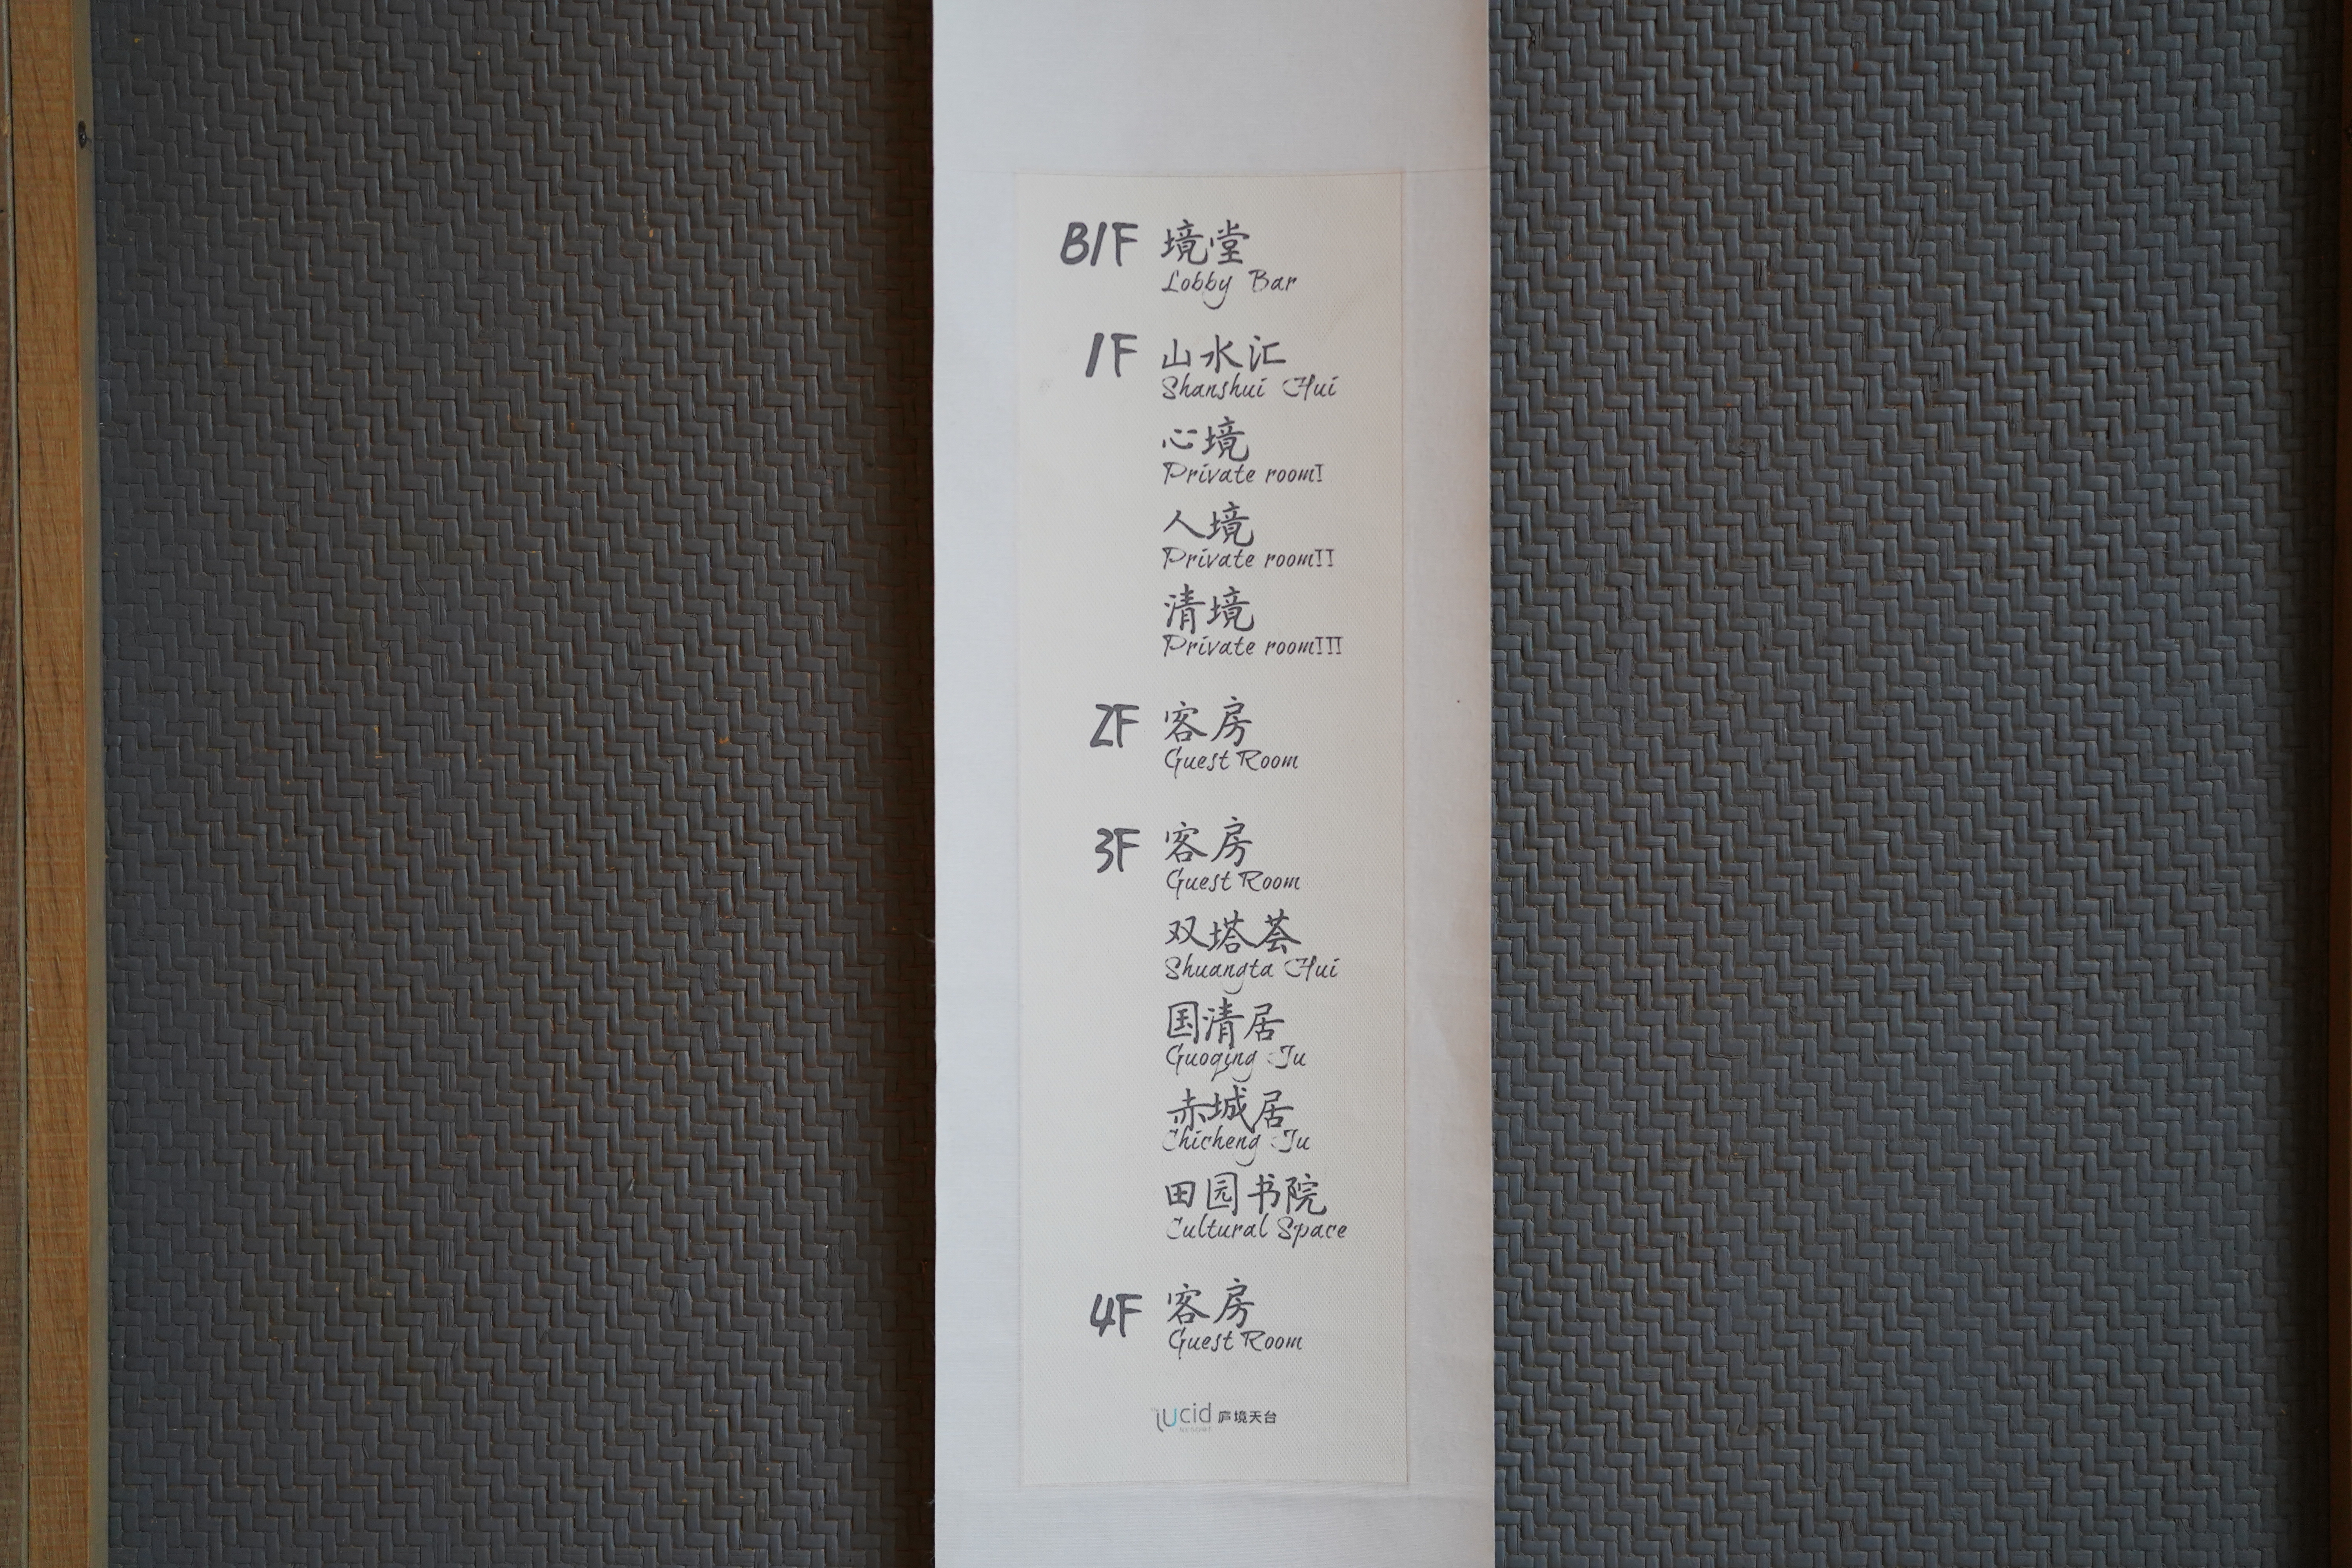 B1F 境堂
Lobby Bar
1F 山水汇
Shanshui Hui
心境
Private roomI
人境
Private roomII
清境
Private roomIII
2F 客房
Guest Room
3F 客房
Guest Room
双塔荟
Shuangta Hui
国清居
Guoqing Ju
赤城居
Chicheng Ju
田园书院
Cultural Space
4F 客房
Guest Room
lucid 庐境天台